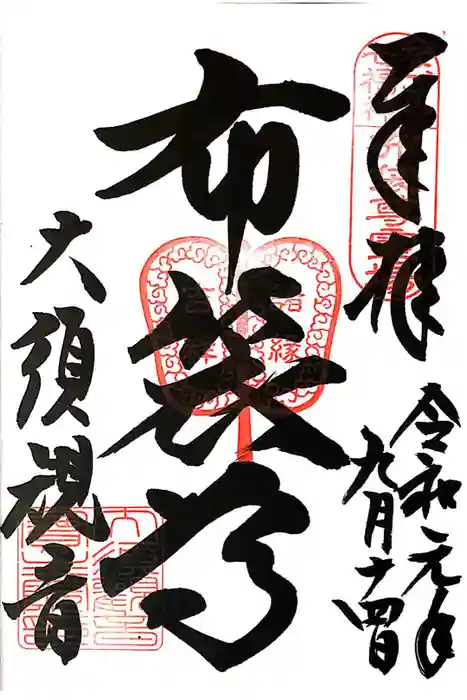 奉拝
令和元年
九月十四日
布袋尊
大須観音